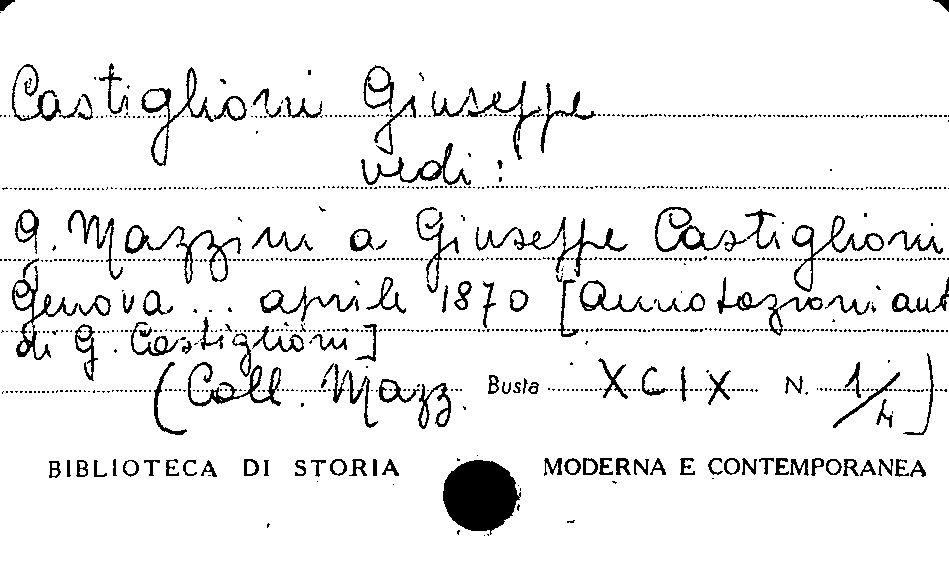 Castiglioni Giuseppe
vedi:
G. Mazzini a Giuseppe Castiglioni
Genova ... aprile 1870 [Annotazioni aut
di G. Castiglioni]
(Coll. Mazz. Busta XCIX N. 1/4)
BIBLIOTECA DI STORIA MODERNA E CONTEMPORANEA